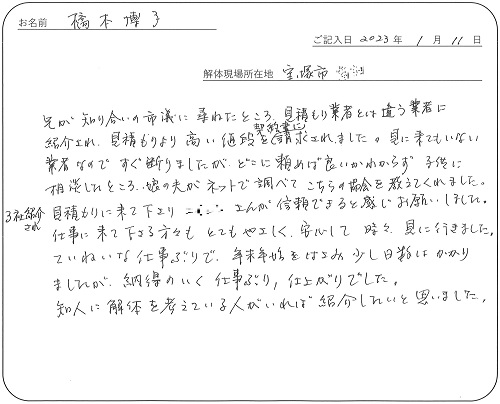 お名前 橋本博子
ご記入日 2023年 1月 11日
解体現場所在地 宝塚市
兄が知り合いの市議に尋ねたところ、見積もり業者とは違う業者に
紹介され、見積もりより高い値段を契約書に請求されました。見に来てもいない
業者なのですぐ断りましたが、どこに頼めば良いかわからず子供に
相談したところ、娘の夫がネットで調べてこちらの協会を教えてくれました。
3社紹介され 見積もりに来て下さり さんが信頼できると感じお願いしました。
仕事に来て下さる方々もとてもやさしく、安心して時々見に行きました。
ていねいな仕事ぶりで、年末年始をはさみ少し日数はかかり
ましたが、納得のいく仕事ぶり,仕上がりでした。
知人に解体を考えている人がいれば紹介したいと思いました。